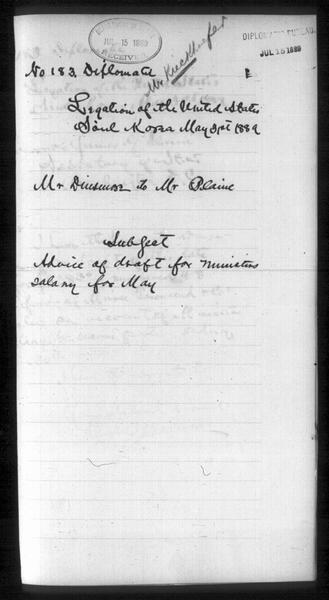 JUL 15 1889
RECEIVED
DIPLOMATIC BUREAU,
JUL 15 1889
No 183, Diplomatic
Legation of the United States
Söul Korea May 31st 1889
Mr Dinsmore to Mr Blaine
Subject
Advice of draft for ministers
salary for May